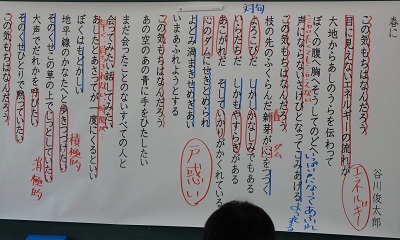 春に
谷川俊太郎
この気もちはなんだろう
目に見えないエネルギーの流れが
大地からあしのうらを伝わって
ぼくの腹へ胸へそうしてのどへ
声にならないさけびとなってこみあげる
この気もちはなんだろう
枝の先のふくらんだ新芽が心をつつく
よろこびだ しかしかなしみでもある
いらだちだ しかもやすらぎがある
あこがれだ そしていかりがかくれている
心のダムにせきとめられ
よどみ渦まきせめぎあい
いまあふれようとする
この気もちはなんだろう
あの空のあの青に手をひたしたい
まだ会ったことのないすべての人と
会ってみたい話してみたい
あしたとあさってが一度にくるといい
ぼくはもどかしい
地平線のかなたへと歩きつづけたい
そのくせこの草の上でじっとしていたい
大声でだれかを呼びたい
そのくせひとりで黙っていたい
この気もちはなんだろう
エネルギー
対句
ダム
戸惑い
積極的
消極的